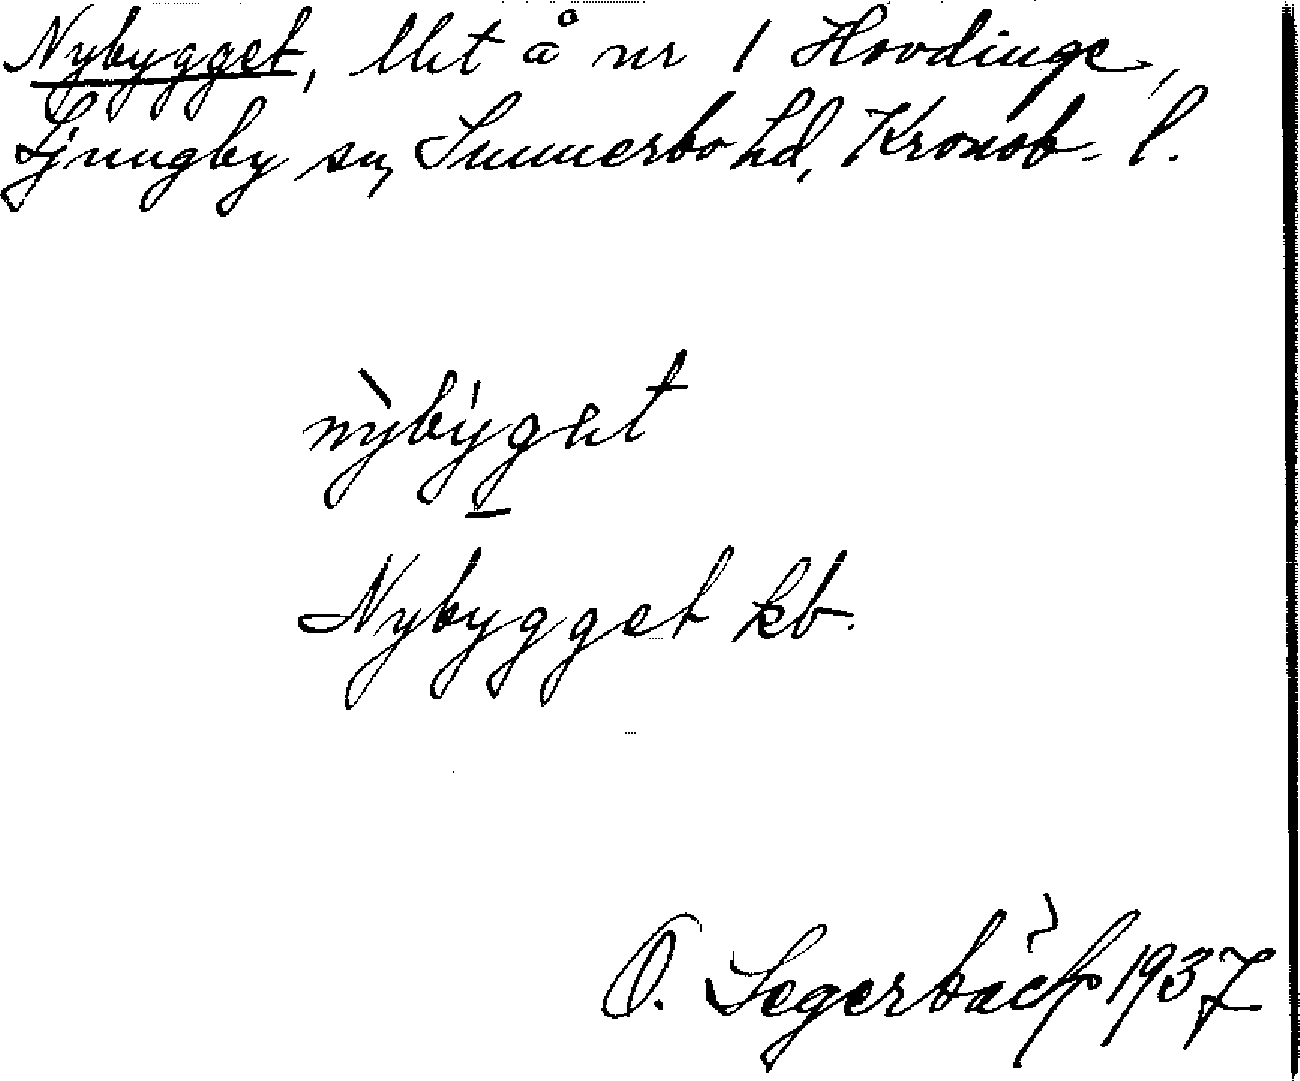 Nybygget, llht å nr 1 Hovdinge,
Ljungby sn, Sunnerbo hd, Kronob. l.
nỳbýgət
Nybygget kb.
O. Segerbäck 1937